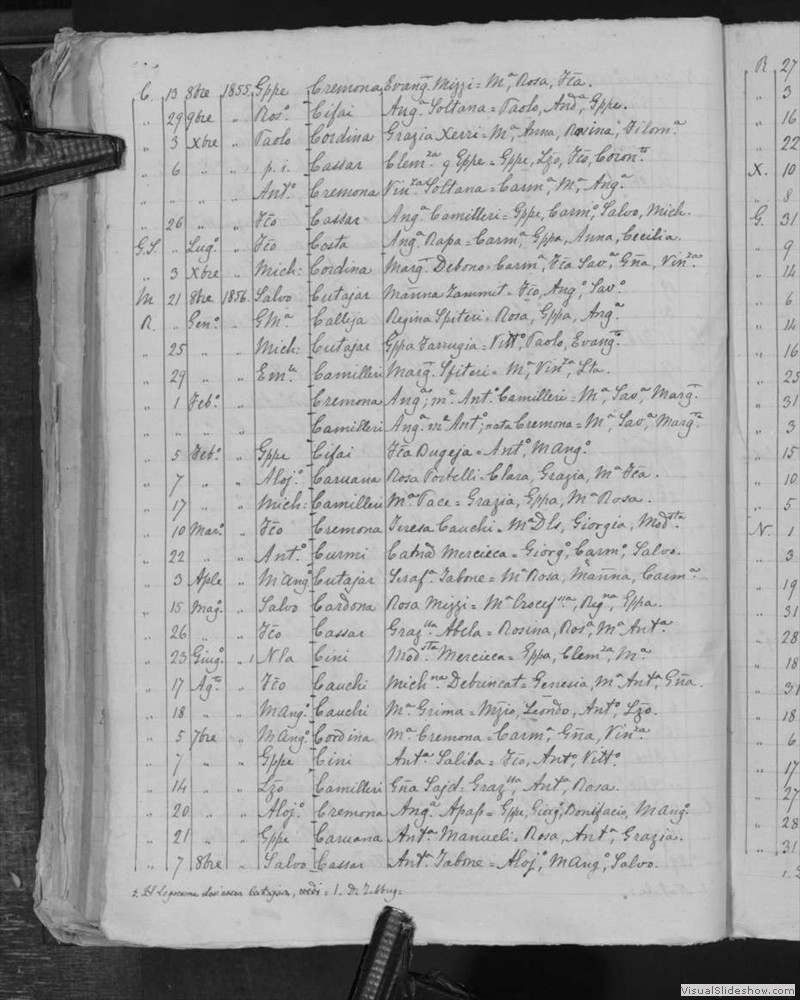 C. 13 8bre 1855 Gppe Cremona Evangᵗᵃ Mizzi = Mᵃ, Rosa, Fca.
„ 29 9bre „ Rosº Cifai Angᵃ Soltana = Paolo, Andᵃ, Gppe.
„ 3 Xbre „ Paolo Cordina Grazia Xerri = Mᵃ, Anna, Rosina, Filomᵃ
„ 6 „ „ p. i. Cassar Clemᶻᵃ q Gppe = Gppe, Lzo, Fco, Coronᵗᵃ
„ „ „ „ Antº Cremona Vinᶻᵃ Soltana = Carmᵃ, Mᵃ, Angᵃ
„ 26 „ „ Fco Cassar Angᵃ Camilleri = Gppe, Carmº, Salvo, Mich.
G.S. „ Lugº „ Fco Costa Angᵃ Rapa = Carmᵃ, Gppa, Anna, Cecilia.
„ 3 Xbre „ Mich: Cordina Margᵗᵃ Debono = Carmᵃ, Fca Savᵃ, Gña, Vinᶻᵃ
M 21 8bre 1856 Salvo Cutajar Mañna Zammit = Fco, Angº, Savº
R. „ Genº „ GMᵃ Calleja Regina Spiteri = Rosa, Gppa, Angᵃ
„ 25 „ „ Mich: Cutajar Gppa Farrugia = Vittº, Paolo, Evangᵗᵃ
„ 29 „ „ Emˡᵉ Camilleri Margᵗᵃ Spiteri = Mᵃ, Vinᶻᵃ,
„ 1 Febº „ Cremona Angᵃ; mᵉ Antº Camilleri = Mᵃ, Savᵃ, Margᵗᵃ
„ „ „ „ Camilleri Angᵃ mᵉ Antº; nata Cremona = Mᵃ, Savᵃ, Margᵗᵃ
„ 5 Febº „ Gppe Cifai Fca Bugeja = Antº, MAngº
„ 7 „ „ Alojº Caruana Rosa Portelli = Clara, Grazia, Mᵃ Fca.
„ 17 „ „ Mich: Camilleri Mᵃ Pace = Grazia, Gppa, Mᵃ Rosa.
„ 10 Marº „ Fco Cremona Teresa Cauchi = Mᵃ Dls, Giorgia, Modˢᵗᵃ
„ 22 „ „ Antº Curmi Catnᵃ Mercieca = Giorgº, Carmº, Salvo.
„ 3 Aple „ MAngº Cutajar Serafᵃ Tabone = Mᵃ Rosa, Mañna, Carmᵃ
„ 15 Magº „ Salvo Cardona Rosa Mizzi = Mᵃ Crocefˢˢᵃ, Rigⁿᵃ, Gppa.
„ 26 „ „ Fco Cassar Grazˡˡᵃ Abela = Rosina, Rosᵃ, Mᵃ Antᵃ
„ 23 Giugº „ Nla Cini Modˢᵗᵃ Mercieca = Gppa, Clemᶻᵃ, Mᵃ
„ 17 Agᵗᵒ „ Fco Cauchi Michⁿᵃ Debuncat = Genesia, Mᵃ Antᵃ, Gña.
„ 18 „ „ MAngº Cauchi Mᵃ Grima = Mzio, Leondo, Antº, Lzo.
„ 5 7bre „ MAngº Cordina Mᵃ Cremona = Carmᵃ, Gña, Vinᶻᵃ
„ 7 „ „ Gppe Cini Antᵃ Saliba = Fco, Antº, Vittº
„ 14 „ „ Lzo Camilleri Gña Sajd = Grazˡˡᵃ, Antᵃ, Rosa.
„ 20 „ „ Alojº Cremona Angᵃ Apap = Gppe, Giorgº, Bonifacio, MAngº
„ 21 „ „ Gppe Caruana Antᵃ Manueli = Rosa, Antᵃ, Grazia.
„ 7 8bre „ Salvo Cassar Antᵃ Tabone = Alojº, MAngº, Salvo.
Cutajar, vedi = 1. Di Zebbug =
R 27
„ 3
„ 16
„ 22
X. 10
„ 8
G. 31
„ 9
„ 14
„ 6
„ 14
„ 16
„ 25
„ 31
„ 3
„ 15
„ 10
„ 5
N. 1
„ 3
„ 19
„ 31
„ 28
„ 18
„ 31
„ 18
„ 6
„ 17
„ 27
„ 28
„ 31
VisualSlideshow.com